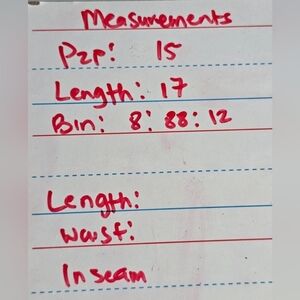 Measurements
P2P: 15
Length: 17
Bin: 8: 88: 12
Length:
Waist:
Inseam